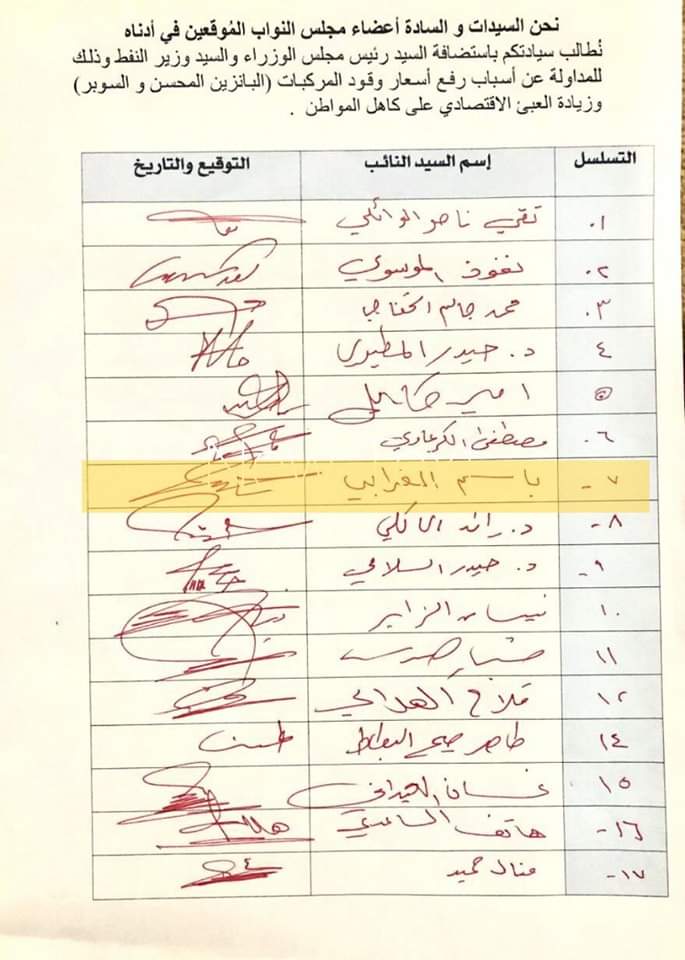 نحن السيدات و السادة أعضاء مجلس النواب المُوقعين في أدناه
نُطالب سيادتكم باستضافة السيد رئيس مجلس الوزراء والسيد وزير النفط وذلك
للمداولة عن أسباب رفع أسعار وقود المركبات (البانزين المحسن و السوبر)
وزيادة العبئ الاقتصادي على كاهل المواطن .
التسلسل إسم السيد النائب التوقيع والتاريخ
٠١ تقي ناصر الوائلي
٠٢ نفوذ الموسوي
٠٣ محمد جاسم الخفاجي
٤ د. حيدر المطيري
٥ امير
٠٦ مصطفى الكرعاوي
٧- باسم الغرابي
٨- د. رائد المالكي
٩- د. حيدر السلامي
١٠ نيسان الزاير
١١
١٢ فلاح الهلالي
١٤ طاهر
١٥ غسان العيداني
١٦- هاتف الساعدي
١٧- منال حميد